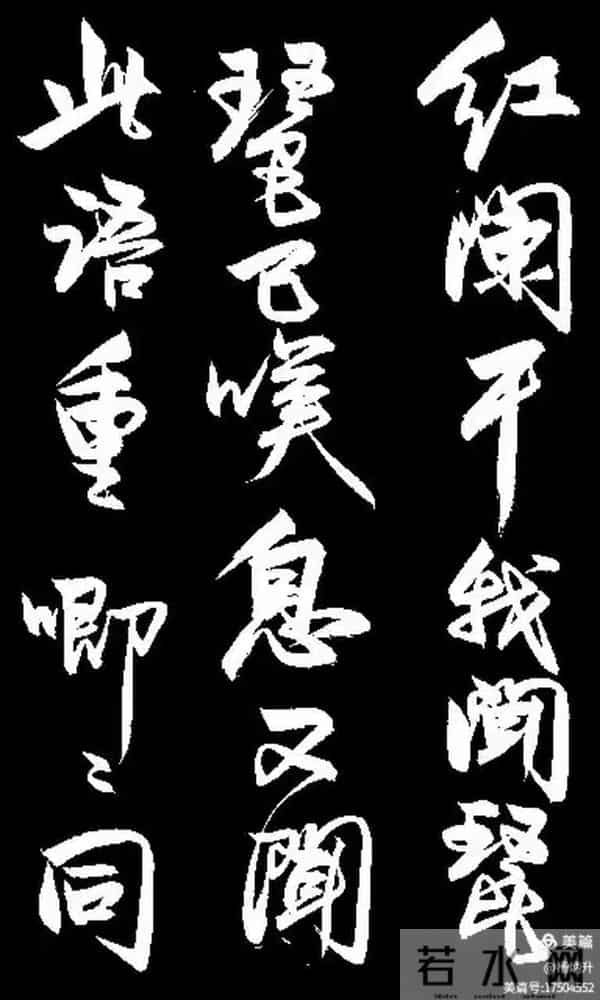 红阑干我闻琵
琶已嘆息又闻
此语重唧〻同
美篇
若水网
美篇号:17504552